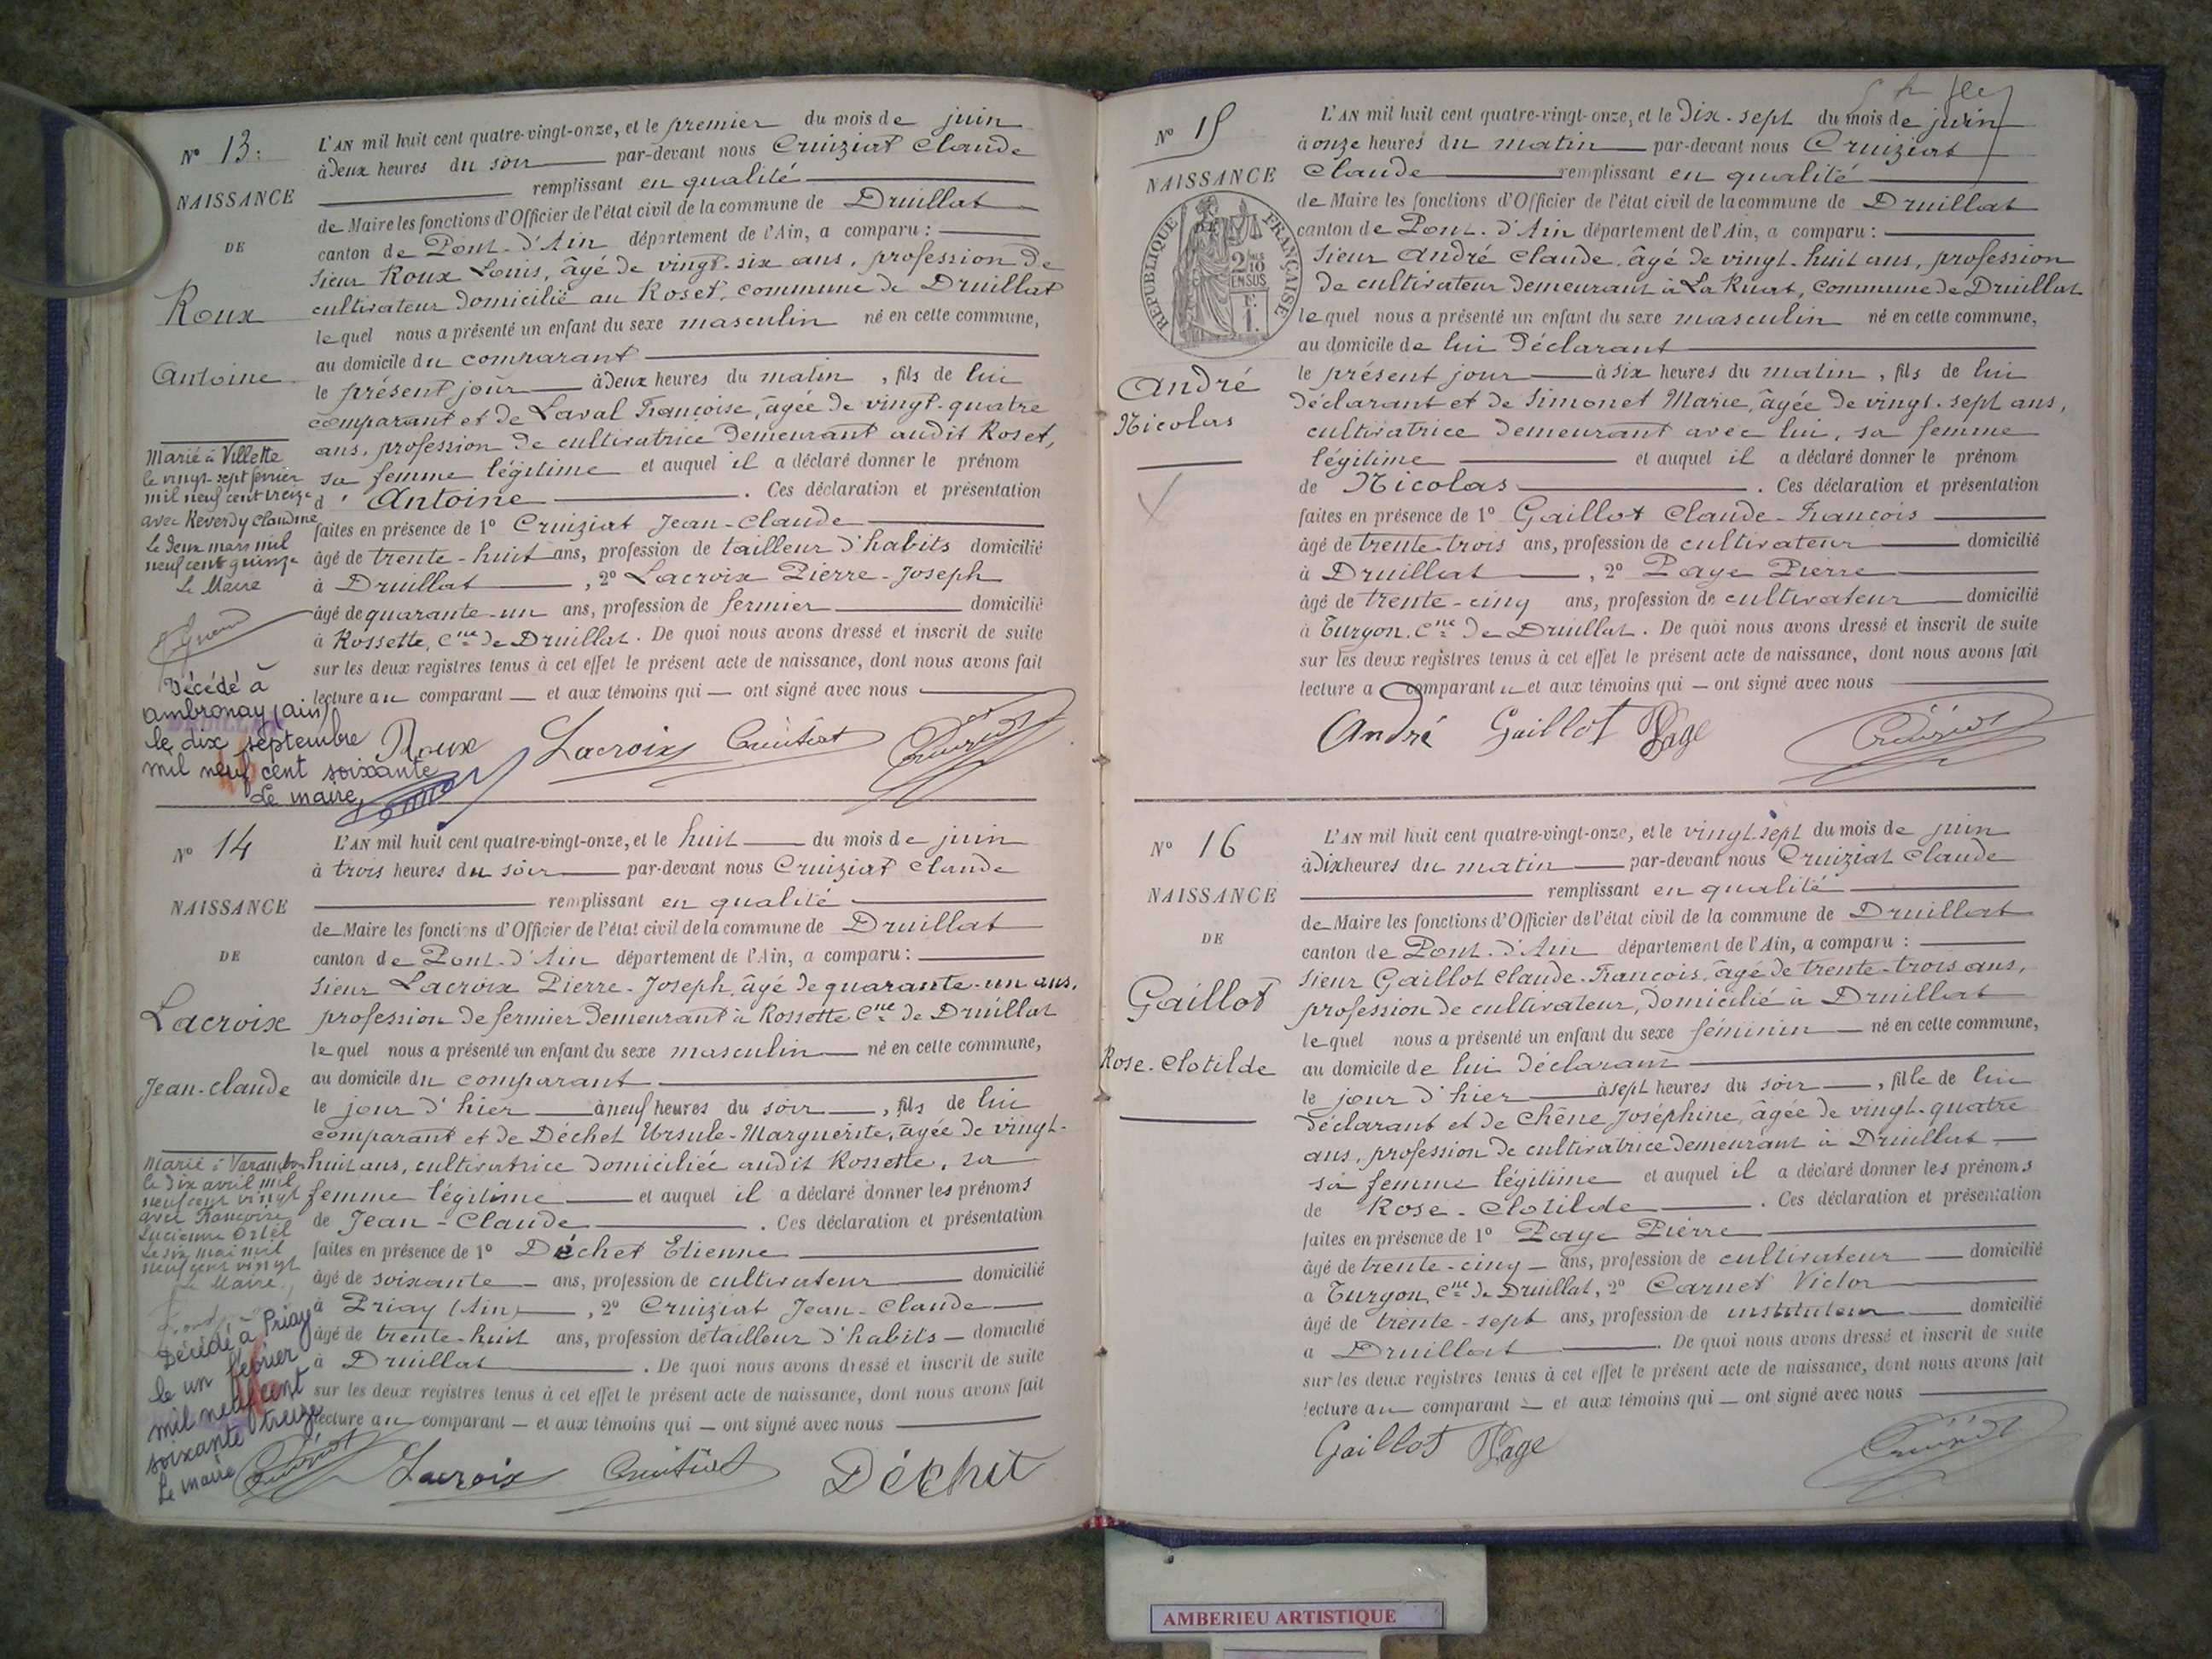 Nº 13.
NAISSANCE
DE
Roux
Antoine
Marié à Villette
le vingt-sept février
mil neuf cent treize
avec Reverdy Claudine
le deux mars mil
neuf cent quinze
Le Maire
Décédé à
Ambronay (ain)
le dix septembre
mil neuf cent soixante
Le maire,
L'AN mil huit cent quatre-vingt-onze, et le premier du mois de juin
à deux heures du soir par-devant nous Cruiziat Claude
remplissant en qualité
de Maire les fonctions d'Officier de l'état civil de la commune de Druillat
canton de Pont-d'Ain département de l'Ain, a comparu :
sieur Roux Louis, âgé de vingt-six ans, profession de
cultivateur domicilié au Roset, commune de Druillat
lequel nous a présenté un enfant du sexe masculin né en cette commune,
au domicile du comparant
le présent jour à deux heures du matin, fils de lui
comparant et de Laval Françoise, âgée de vingt-quatre
ans, profession de cultivatrice demeurant audit Roset,
sa femme légitime et auquel il a déclaré donner le prénom
d'Antoine. Ces déclaration et présentation
faites en présence de 1º Cruiziat Jean-Claude
âgé de trente-huit ans, profession de tailleur d'habits domicilié
à Druillat, 2º Lacroix Pierre-Joseph
âgé de quarante-un ans, profession de fermier domicilié
à Rossette, Cne de Druillat. De quoi nous avons dressé et inscrit de suite
sur les deux registres tenus à cet effet le présent acte de naissance, dont nous avons fait
lecture au comparant et aux témoins qui ont signé avec nous
Roux Lacroix Cruiziat Cruiziat
Nº 14
NAISSANCE
DE
Lacroix
Jean-Claude
Marié à Varambon
le dix avril mil
neuf cent vingt
avec Françoise
Lucienne Ortel
Le six mai mil
neuf cent vingt
Le Maire,
Décédé à Priay
le un février
mil neuf cent
soixante treize
Le maire
L'AN mil huit cent quatre-vingt-onze, et le huit du mois de juin
à trois heures du soir par-devant nous Cruiziat Claude
remplissant en qualité
de Maire les fonctions d'Officier de l'état civil de la commune de Druillat
canton de Pont-d'Ain département de l'Ain, a comparu :
sieur Lacroix Pierre-Joseph, âgé de quarante-un ans,
profession de fermier demeurant à Rossette Cne de Druillat
lequel nous a présenté un enfant du sexe masculin né en cette commune,
au domicile du comparant
le jour d'hier à neuf heures du soir, fils de lui
comparant et de Déchet Ursule-Marguerite, âgée de vingt-
huit ans, cultivatrice domiciliée audit Rossette, sa
femme légitime et auquel il a déclaré donner les prénoms
de Jean-Claude. Ces déclaration et présentation
faites en présence de 1º Déchet Etienne
âgé de soixante ans, profession de cultivateur domicilié
à Priay (Ain), 2º Cruiziat Jean-Claude
âgé de trente-huit ans, profession de tailleur d'habits domicilié
à Druillat. De quoi nous avons dressé et inscrit de suite
sur les deux registres tenus à cet effet le présent acte de naissance, dont nous avons fait
lecture au comparant et aux témoins qui ont signé avec nous
Cruiziat Lacroix Cruiziat Déchet
Nº 15
NAISSANCE
RÉPUBLIQUE FRANÇAISE
2/10 EN SUS
André
Nicolas
L'AN mil huit cent quatre-vingt-onze, et le dix-sept du mois de juin
à onze heures du matin par-devant nous Cruiziat
Claude remplissant en qualité
de Maire les fonctions d'Officier de l'état civil de la commune de Druillat
canton de Pont-d'Ain département de l'Ain, a comparu :
sieur André Claude, âgé de vingt-huit ans, profession
de cultivateur demeurant à La Ruat, commune de Druillat
lequel nous a présenté un enfant du sexe masculin né en cette commune,
au domicile de lui déclarant
le présent jour à six heures du matin, fils de lui
déclarant et de Simonet Marie, âgée de vingt-sept ans,
cultivatrice demeurant avec lui, sa femme
légitime et auquel il a déclaré donner le prénom
de Nicolas. Ces déclaration et présentation
faites en présence de 1º Gaillot Claude-François
âgé de trente-trois ans, profession de cultivateur domicilié
à Druillat, 2º Page Pierre
âgé de trente-cinq ans, profession de cultivateur domicilié
à Turgon, Cne de Druillat. De quoi nous avons dressé et inscrit de suite
sur les deux registres tenus à cet effet le présent acte de naissance, dont nous avons fait
lecture au comparant et aux témoins qui ont signé avec nous
André Gaillot Page Cruiziat
Nº 16
NAISSANCE
DE
Gaillot
Rose-Clotilde
L'AN mil huit cent quatre-vingt-onze, et le vingt-sept du mois de juin
à dix heures du matin par-devant nous Cruiziat Claude
remplissant en qualité
de Maire les fonctions d'Officier de l'état civil de la commune de Druillat
canton de Pont-d'Ain département de l'Ain, a comparu :
sieur Gaillot Claude-François, âgé de trente-trois ans,
profession de cultivateur, domicilié à Druillat
lequel nous a présenté un enfant du sexe féminin né en cette commune,
au domicile de lui déclarant
le jour d'hier à sept heures du soir, fille de lui
déclarant et de Chêne Joséphine, âgée de vingt-quatre
ans, profession de cultivatrice demeurant à Druillat
sa femme légitime et auquel il a déclaré donner les prénoms
de Rose-Clotilde. Ces déclaration et présentation
faites en présence de 1º Page Pierre
âgé de trente-cinq ans, profession de cultivateur domicilié
à Turgon, Cne de Druillat, 2º Carnet Victor
âgé de trente-sept ans, profession de instituteur domicilié
à Druillat. De quoi nous avons dressé et inscrit de suite
sur les deux registres tenus à cet effet le présent acte de naissance, dont nous avons fait
lecture au comparant et aux témoins qui ont signé avec nous
Gaillot Page Cruiziat
AMBERIEU ARTISTIQUE